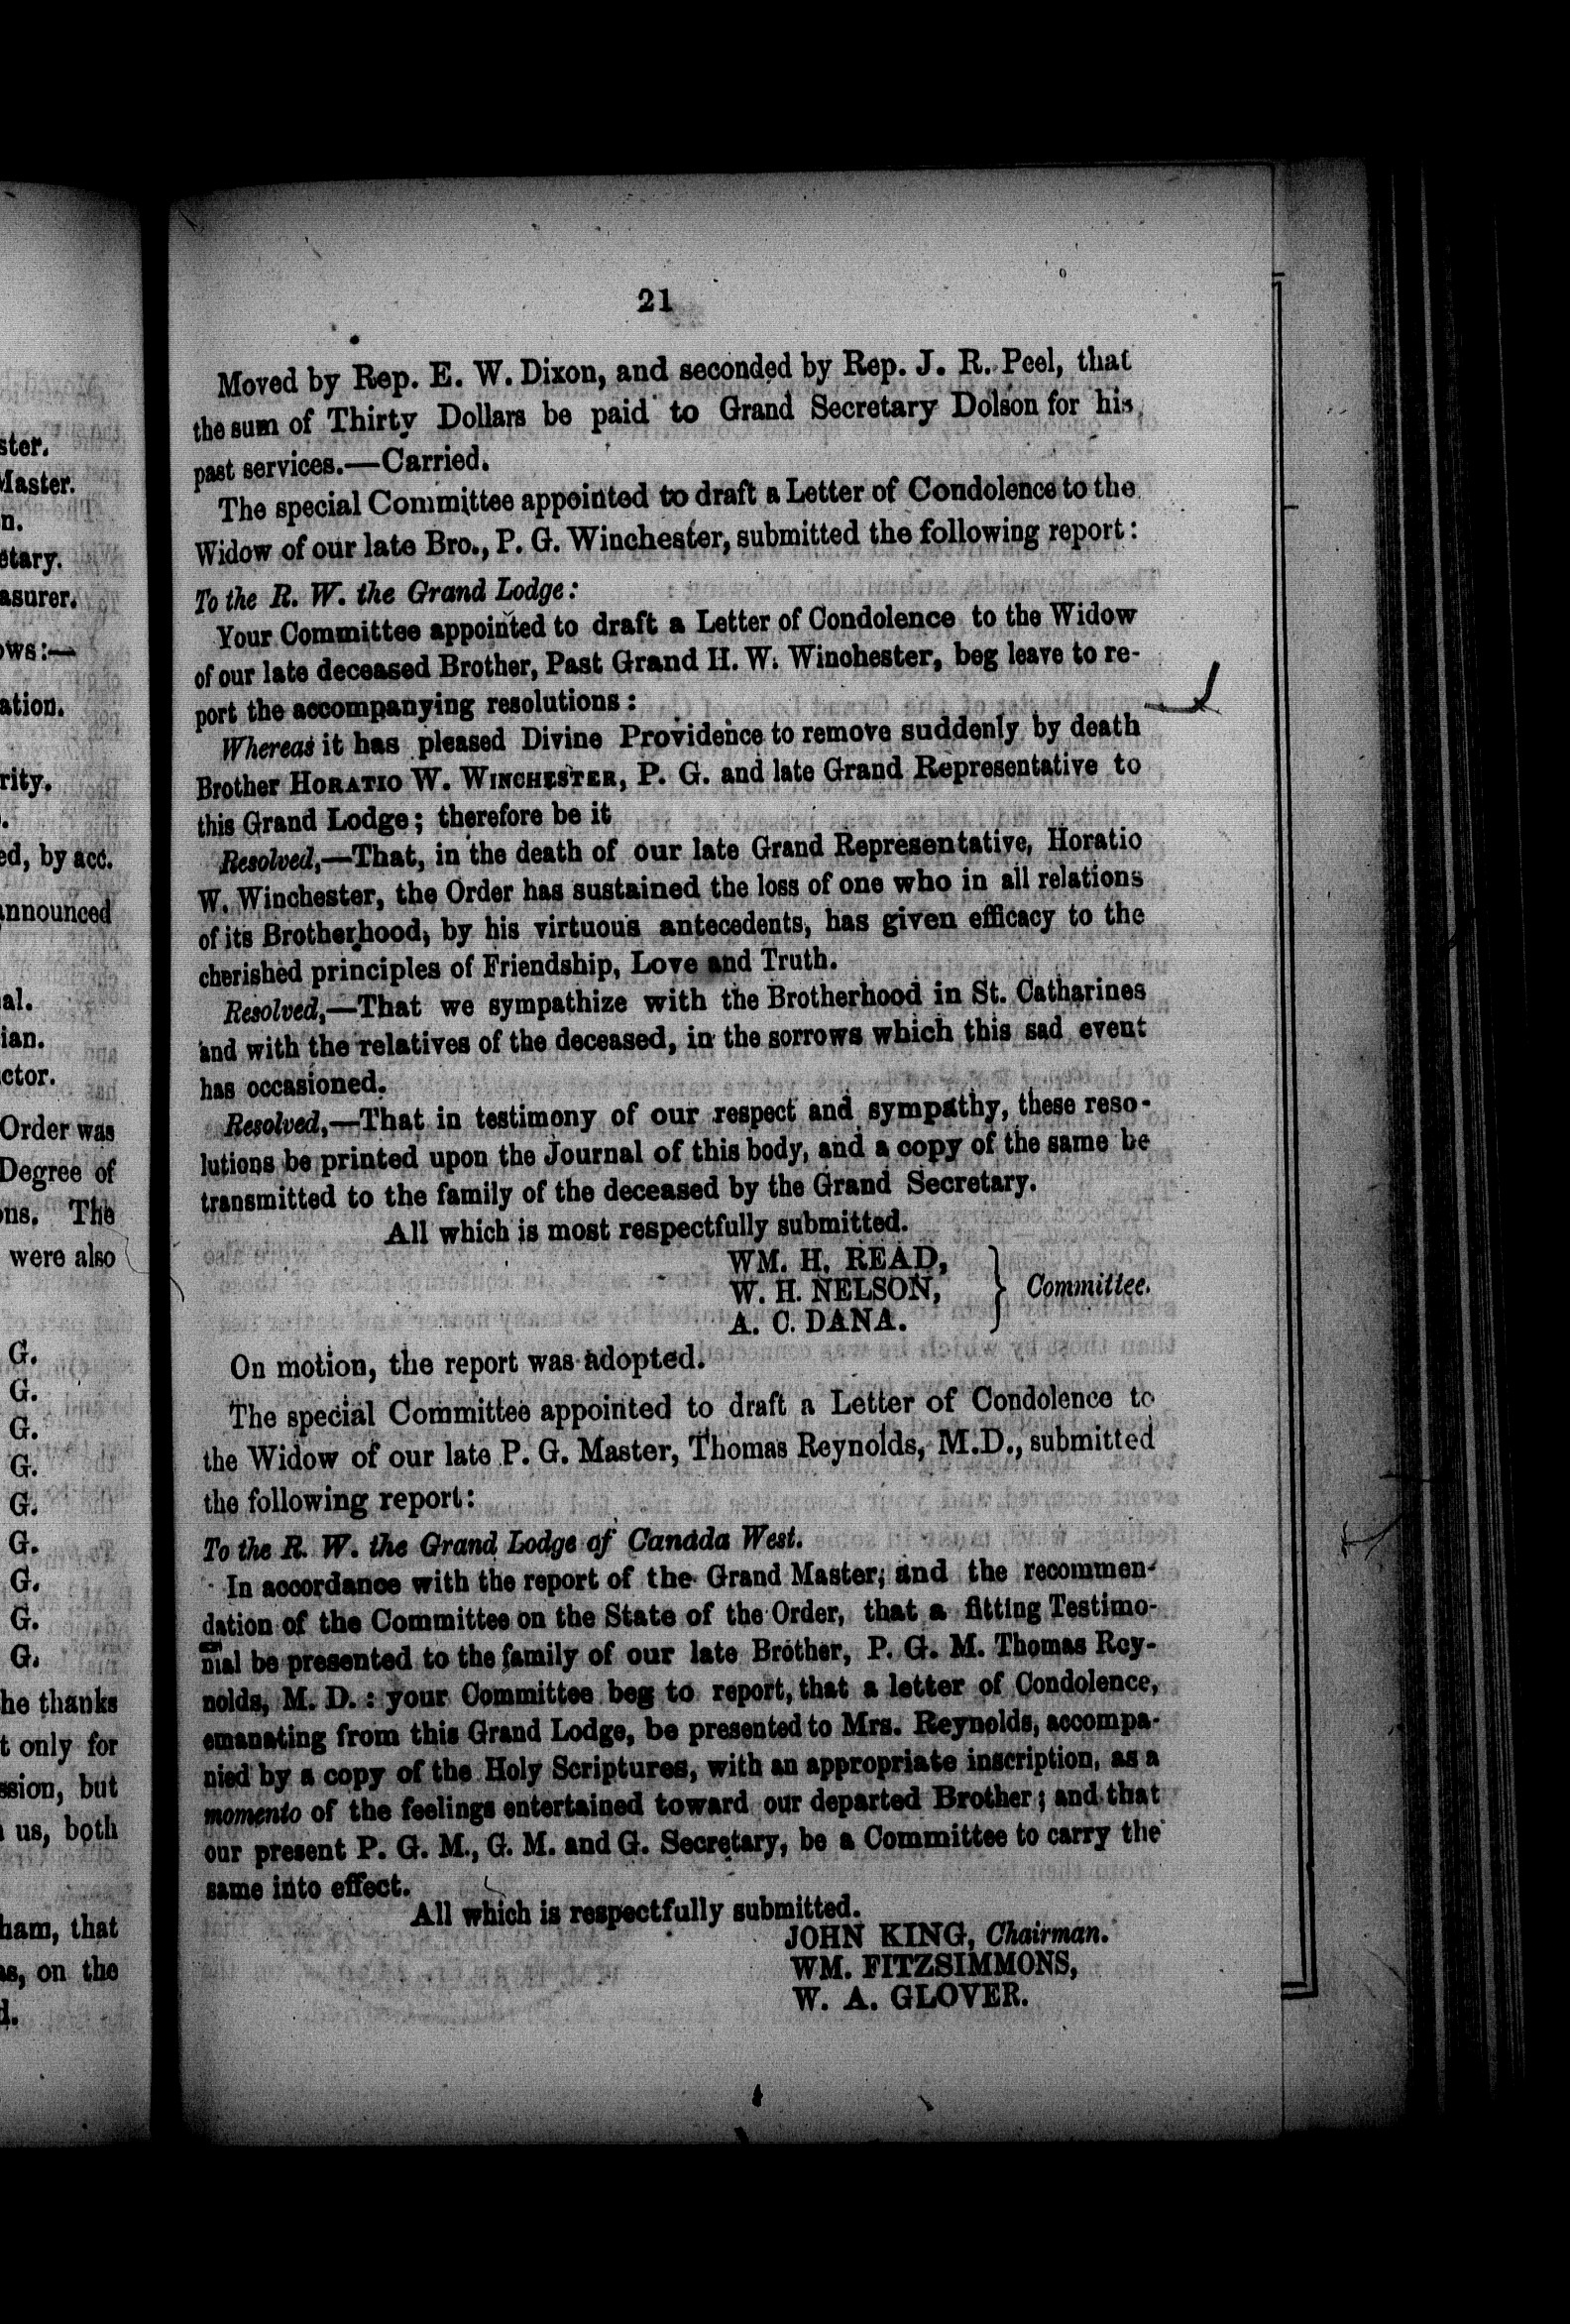 21
Moved by Rep. E. W. Dixon, and seconded by Rep. J. R. Peel, that
the sum of Thirty Dollars be paid to Grand Secretary Dolson for his
past services.—Carried.
The special Committee appointed to draft a Letter of Condolence to the
Widow of our late Bro., P. G. Winchester, submitted the following report:
To the R. W. the Grand Lodge:
Your Committee appointed to draft a Letter of Condolence to the Widow
of our late deceased Brother, Past Grand H. W. Winchester, beg leave to re-
port the accompanying resolutions:
Whereas it has pleased Divine Providence to remove suddenly by death
Brother HORATIO W. WINCHESTER, P. G. and late Grand Representative to
this Grand Lodge; therefore be it
Resolved,—That, in the death of our late Grand Representative, Horatio
W. Winchester, the Order has sustained the loss of one who in all relations
of its Brotherhood, by his virtuous antecedents, has given efficacy to the
cherished principles of Friendship, Love and Truth.
Resolved,—That we sympathize with the Brotherhood in St. Catharines
and with the relatives of the deceased, in the sorrows which this sad event
has occasioned.
Resolved,—That in testimony of our respect and sympathy, these reso-
lutions be printed upon the Journal of this body, and a copy of the same be
transmitted to the family of the deceased by the Grand Secretary.
All which is most respectfully submitted.
WM. H. READ,
W. H. NELSON, } Committee.
A. C. DANA.
On motion, the report was adopted.
The special Committee appointed to draft a Letter of Condolence to
the Widow of our late P. G. Master, Thomas Reynolds, M.D., submitted
the following report:
To the R. W. the Grand Lodge of Canada West.
In accordance with the report of the Grand Master, and the recommen-
dation of the Committee on the State of the Order, that a fitting Testimo-
nial be presented to the family of our late Brother, P. G. M. Thomas Rey-
nolds, M. D.: your Committee beg to report, that a letter of Condolence,
emanating from this Grand Lodge, be presented to Mrs. Reynolds, accompa-
nied by a copy of the Holy Scriptures, with an appropriate inscription, as a
momento of the feelings entertained toward our departed Brother; and that
our present P. G. M., G. M. and G. Secretary, be a Committee to carry the
same into effect.
All which is respectfully submitted.
JOHN KING, Chairman.
WM. FITZSIMMONS,
W. A. GLOVER.